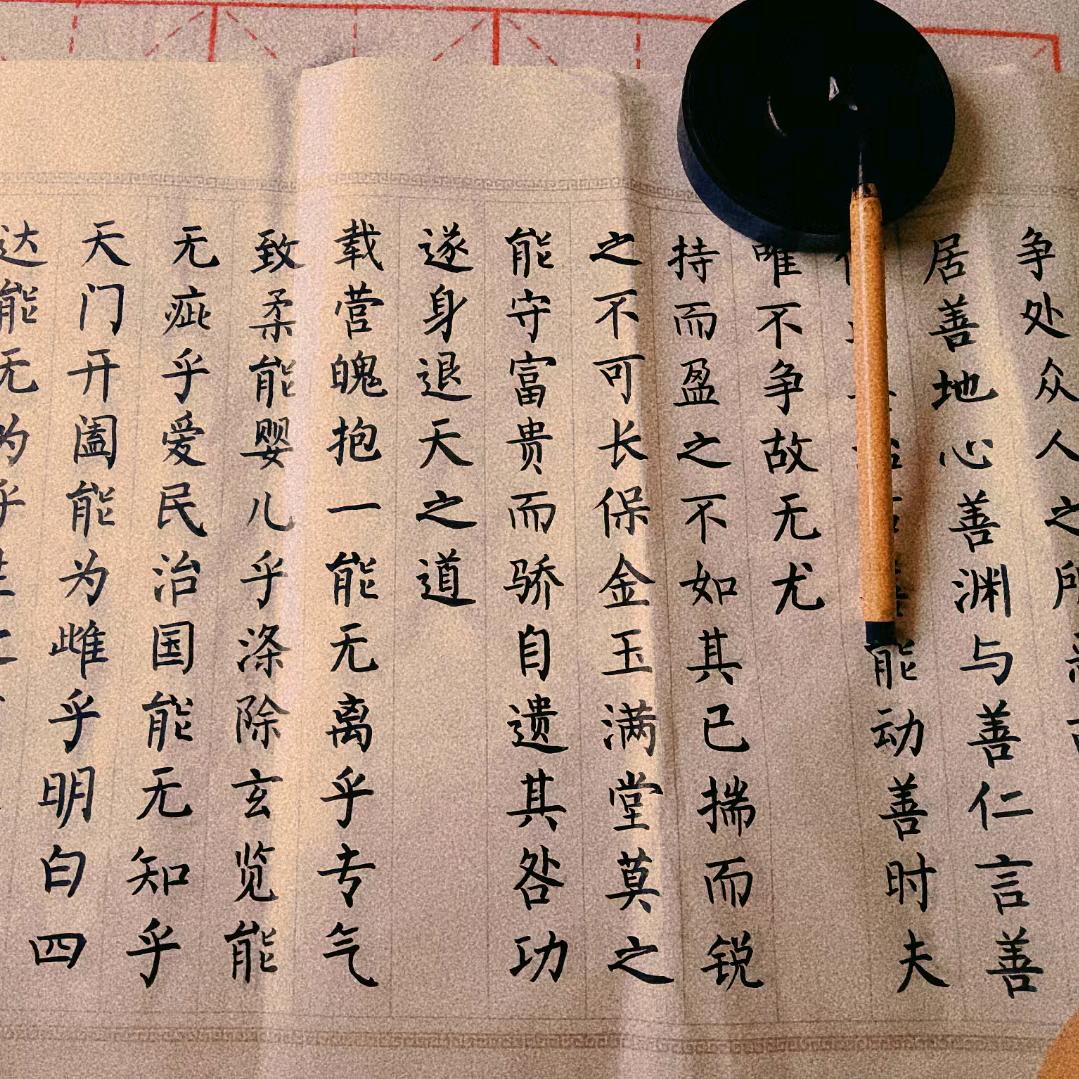 争处众人之所
居善地心善渊与善仁言善
能动善时夫
唯不争故无尤
持而盈之不如其已揣而锐
之不可长保金玉满堂莫之
能守富贵而骄自遗其咎功
遂身退天之道
载营魄抱一能无离乎专气
致柔能婴儿乎涤除玄览能
无疵乎爱民治国能无知乎
天门开阖能为雌乎明白四
达能无为乎